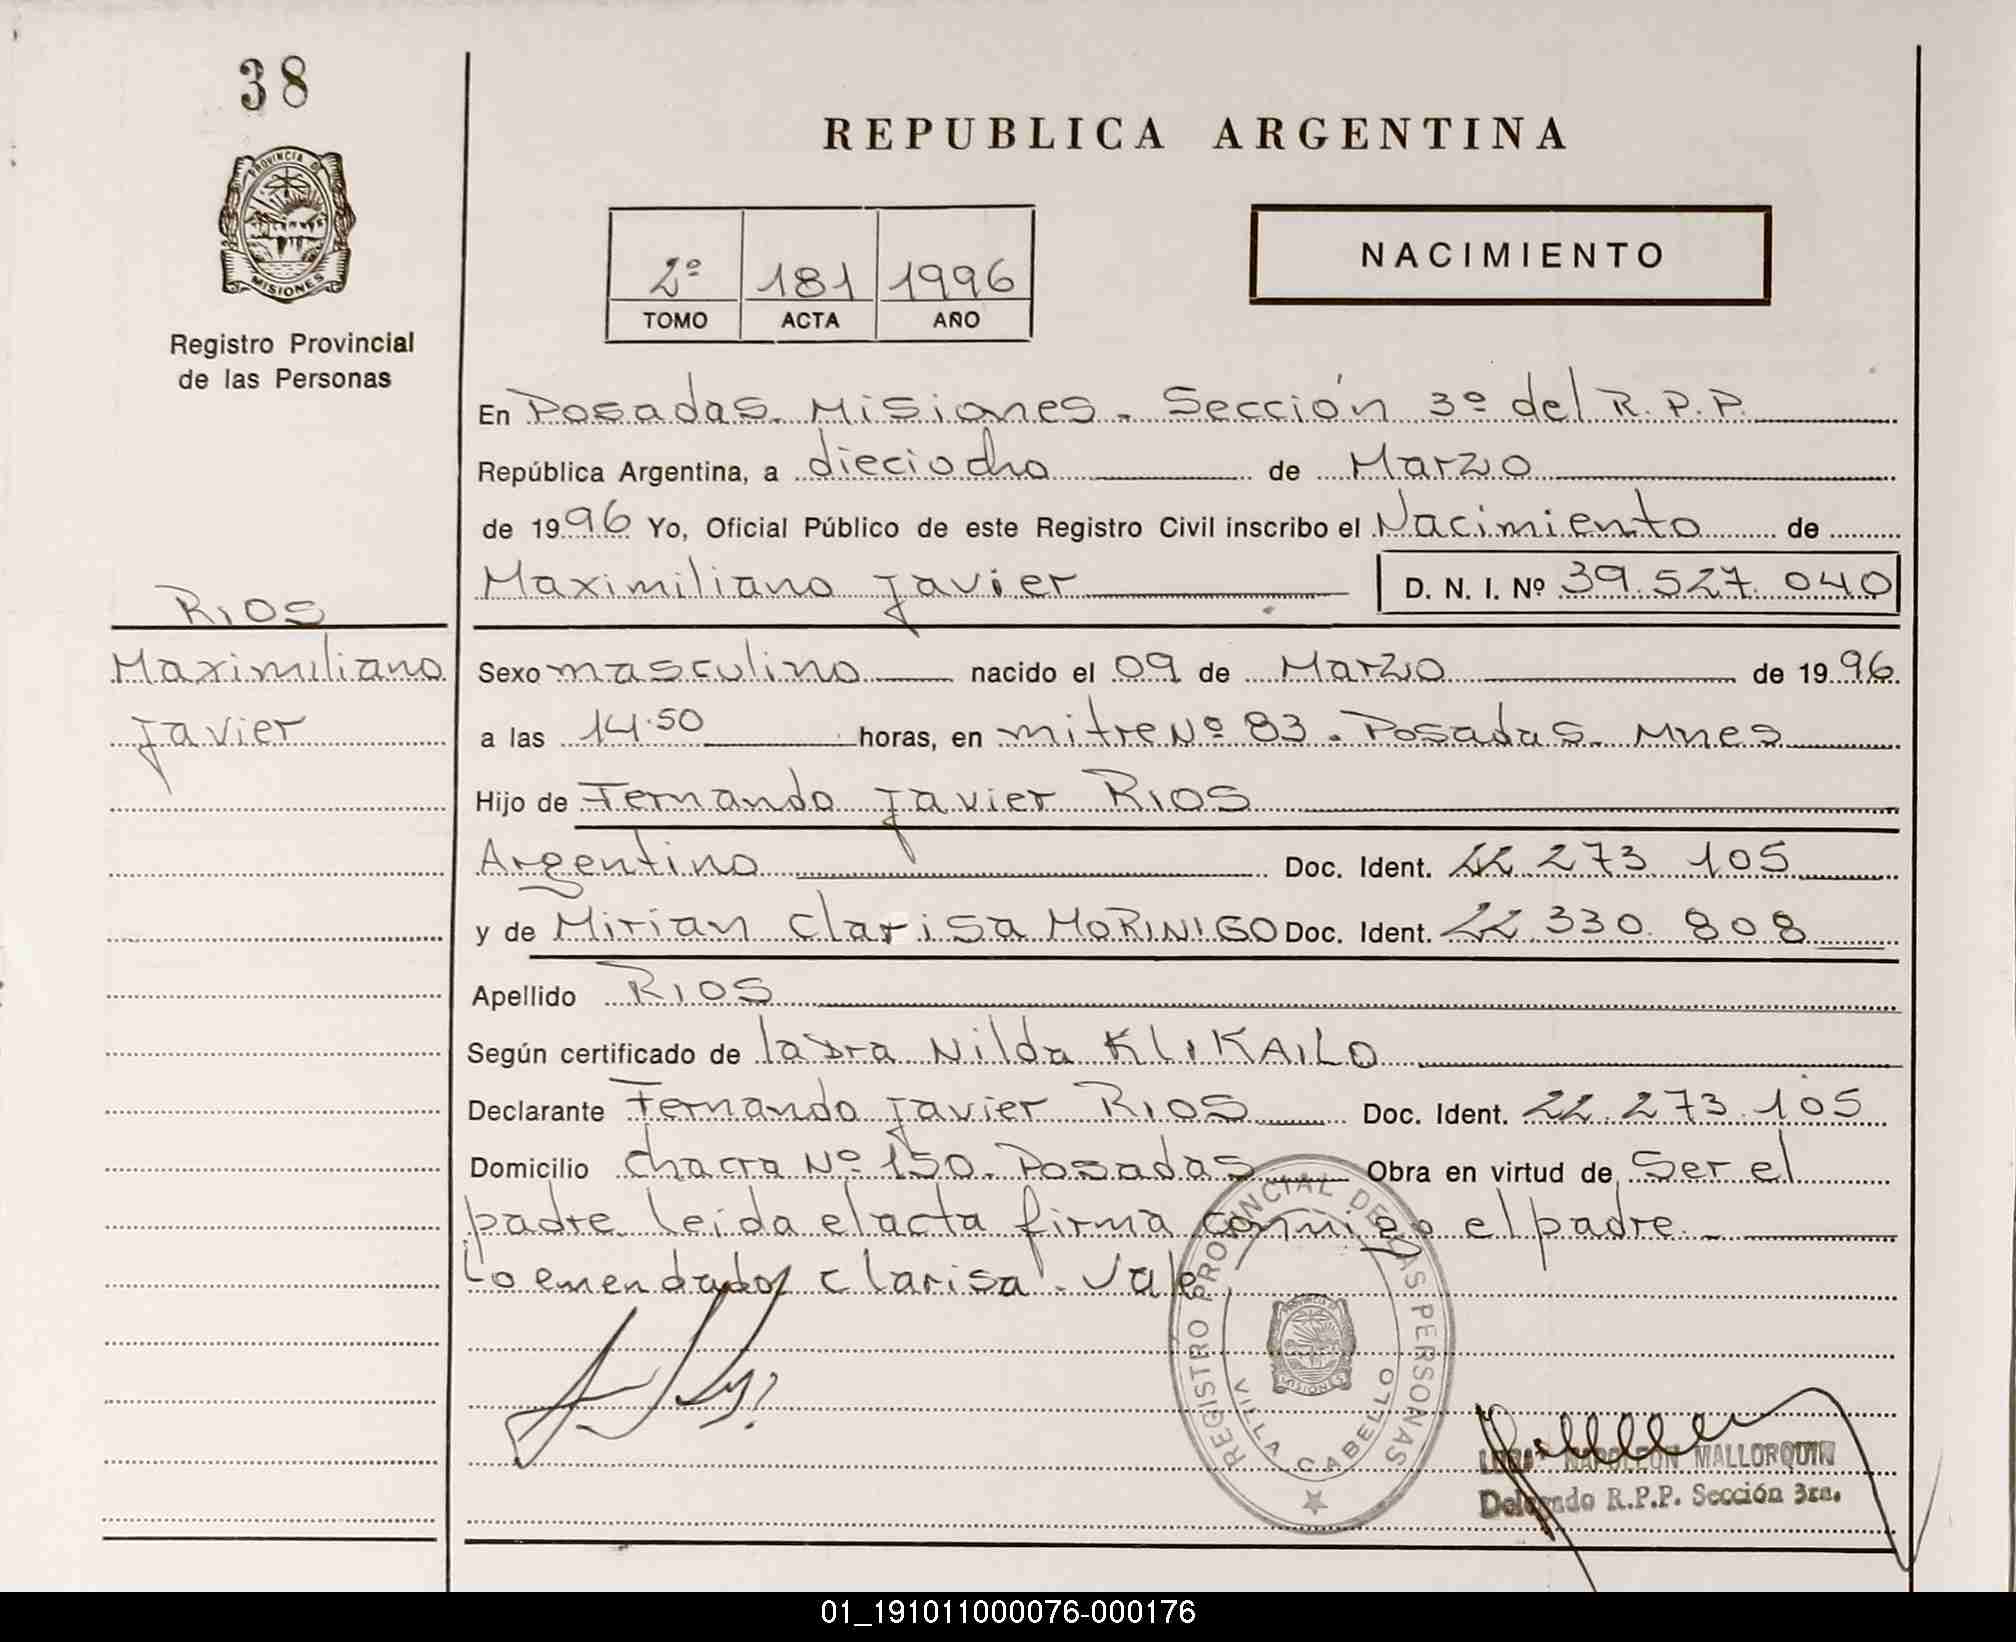 38
PROVINCIA D
MISIONES
Registro Provincial
de las Personas
RIOS
Maximiliano
Javier
REPUBLICA ARGENTINA
2º 181 1996
TOMO ACTA AÑO
NACIMIENTO
En Posadas. Misiones. Sección 3º del R.P.P.
República Argentina, a dieciocho de Marzo
de 1996 Yo, Oficial Público de este Registro Civil inscribo el Nacimiento de
Maximiliano Javier D. N. I. Nº 39.527.040
Sexo masculino nacido el 09 de Marzo de 1996
a las 14.50 horas, en mitre Nº 83. Posadas. Mnes
Hijo de Fernando Javier RIOS
Argentino Doc. Ident. 22.273.105
y de Mirian Clarisa MORINIGO Doc. Ident. 22.330.808
Apellido RIOS
Según certificado de la Dra Nilda KLIKAILO
Declarante Fernando Javier RIOS Doc. Ident. 22.273.105
Domicilio chacra Nº 150. Posadas Obra en virtud de Ser el
padre. leida el acta firma conmigo el padre.
Lo emendado, clarisa. Vale
REGISTRO PROVINCIAL DE LAS PERSONAS
MISIONES
VILLA CABELLO
NAPOLEON MALLORQUIN
Delegado R.P.P. Sección 3ra.
01_191011000076-000176